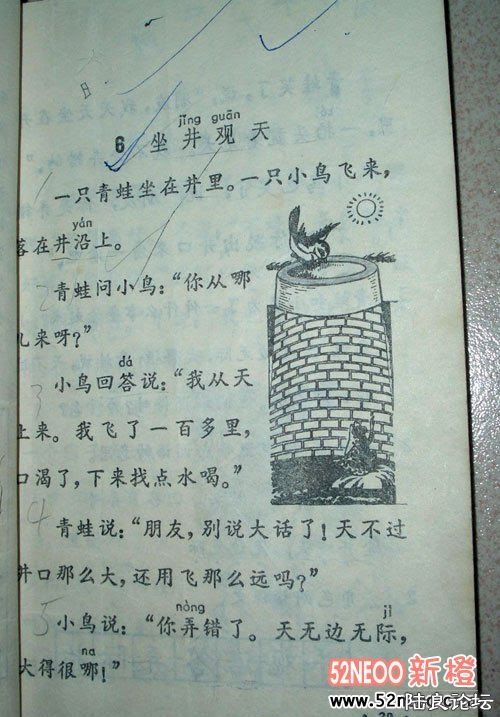 jǐng guān
6 坐井观天
一只青蛙坐在井里。一只小鸟飞来，
yán
落在井沿上。
2 青蛙问小鸟：“你从哪
儿来呀？”
dá
3 小鸟回答说：“我从天
上来。我飞了一百多里，
口渴了，下来找点水喝。”
4 青蛙说：“朋友，别说大话了！天不过
井口那么大，还用飞那么远吗？”
nòng jì
5 小鸟说：“你弄错了。天无边无际，
na
大得很哪！”
52NEOO 新橙
www.52n
陆良论坛